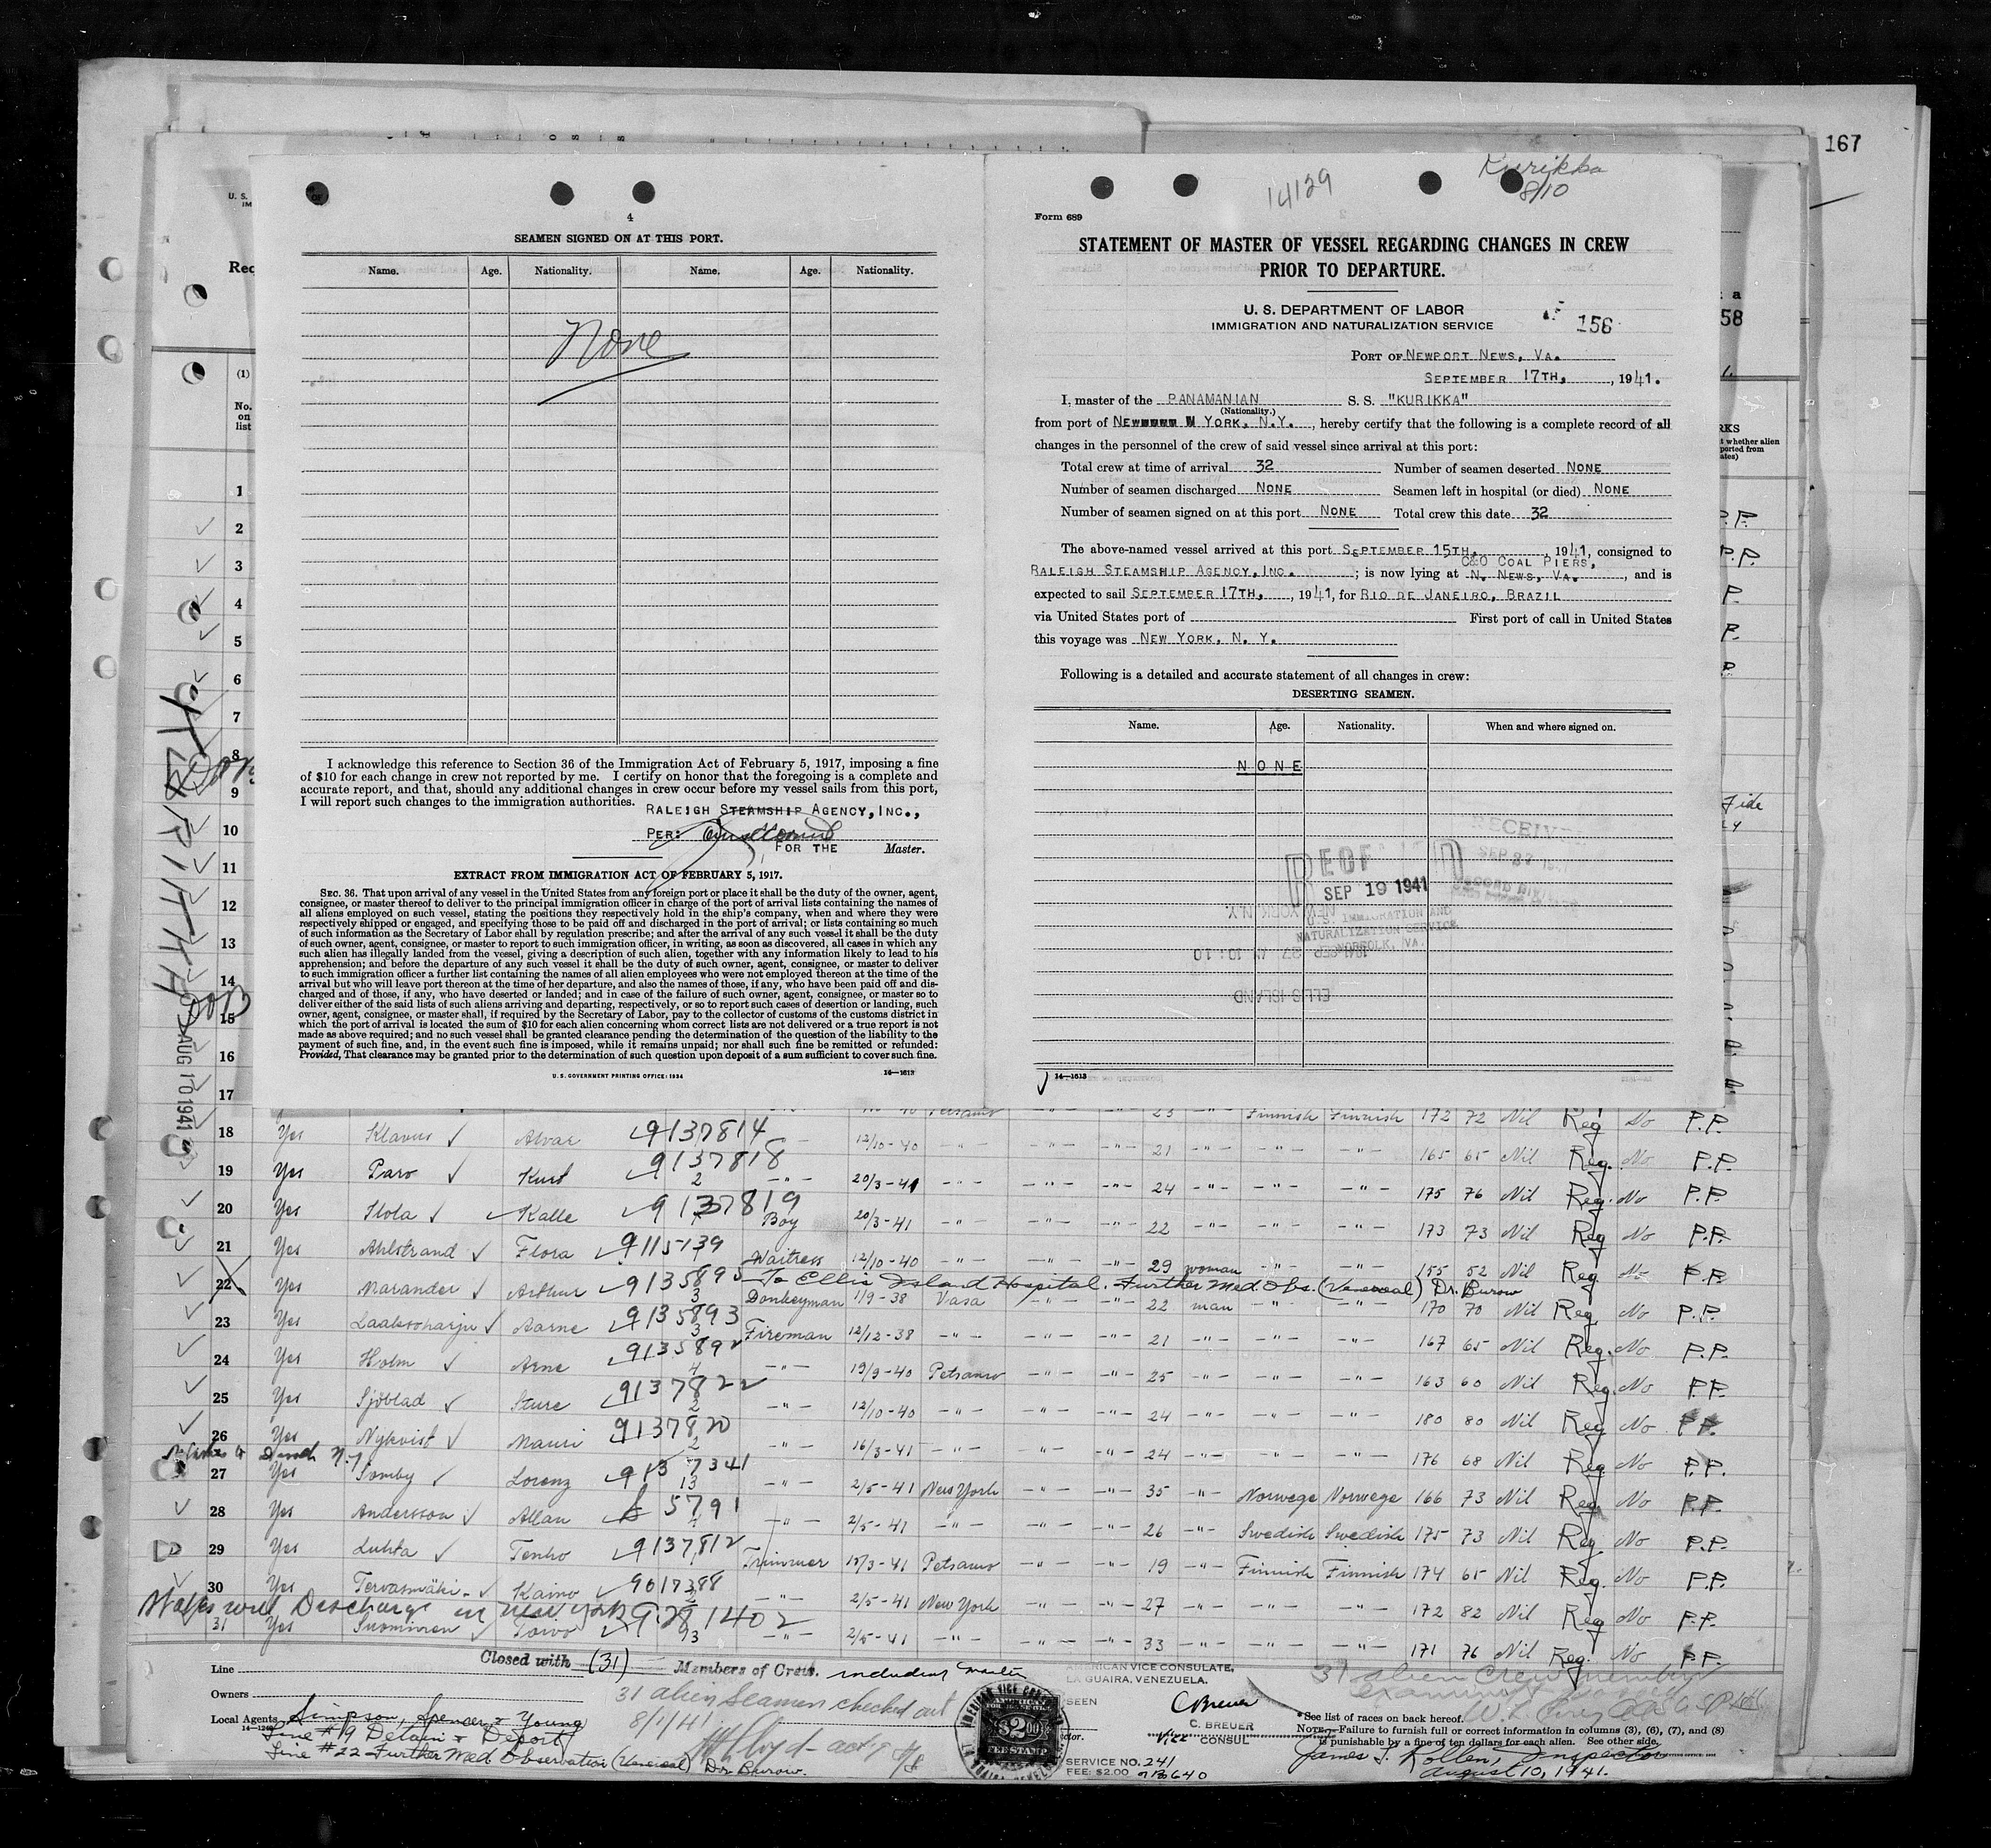 167
4
SEAMEN SIGNED ON AT THIS PORT.
Name. Age. Nationality. Name. Age. Nationality.
None
I acknowledge this reference to Section 36 of the Immigration Act of February 5, 1917, imposing a fine
of $10 for each change in crew not reported by me. I certify on honor that the foregoing is a complete and
accurate report, and that, should any additional changes in crew occur before my vessel sails from this port,
I will report such changes to the immigration authorities.
RALEIGH STEAMSHIP AGENCY, INC.,
PER:
FOR THE Master.
EXTRACT FROM IMMIGRATION ACT OF FEBRUARY 5, 1917.
SEC. 36. That upon arrival of any vessel in the United States from any foreign port or place it shall be the duty of the owner, agent,
consignee, or master thereof to deliver to the principal immigration officer in charge of the port of arrival lists containing the names of
all aliens employed on such vessel, stating the positions they respectively hold in the ship's company, when and where they were
respectively shipped or engaged, and specifying those to be paid off and discharged in the port of arrival; or lists containing so much
of such information as the Secretary of Labor shall by regulation prescribe; and after the arrival of any such vessel it shall be the duty
of such owner, agent, consignee, or master to report to such immigration officer, in writing, as soon as discovered, all cases in which any
such alien has illegally landed from the vessel, giving a description of such alien, together with any information likely to lead to his
apprehension; and before the departure of any such vessel it shall be the duty of such owner, agent, consignee, or master to deliver
to such immigration officer a further list containing the names of all alien employees who were not employed thereon at the time of the
arrival but who will leave port thereon at the time of her departure, and also the names of those, if any, who have been paid off and dis-
charged and of those, if any, who have deserted or landed; and in case of the failure of such owner, agent, consignee, or master so to
deliver either of the said lists of such aliens arriving and departing, respectively, or so to report such cases of desertion or landing, such
owner, agent, consignee, or master shall, if required by the Secretary of Labor, pay to the collector of customs of the customs district in
which the port of arrival is located the sum of $10 for each alien concerning whom correct lists are not delivered or a true report is not
made as above required; and no such vessel shall be granted clearance pending the determination of the question of the liability to the
payment of such fine, and, in the event such fine is imposed, while it remains unpaid; nor shall such fine be remitted or refunded:
Provided, That clearance may be granted prior to the determination of such question upon deposit of a sum sufficient to cover such fine.
U. S. GOVERNMENT PRINTING OFFICE: 1934 14—1613
Kurikka
8/10
14129
Form 689
STATEMENT OF MASTER OF VESSEL REGARDING CHANGES IN CREW
PRIOR TO DEPARTURE.
U. S. DEPARTMENT OF LABOR
IMMIGRATION AND NATURALIZATION SERVICE
156
PORT OF NEWPORT NEWS, VA.
SEPTEMBER 17TH, , 1941.
I, master of the PANAMANIAN S. S. "KURIKKA"
(Nationality.)
from port of NEW YORK, N.Y. , hereby certify that the following is a complete record of all
changes in the personnel of the crew of said vessel since arrival at this port:
Total crew at time of arrival 32 Number of seamen deserted NONE
Number of seamen discharged NONE Seamen left in hospital (or died) NONE
Number of seamen signed on at this port NONE Total crew this date 32
The above-named vessel arrived at this port SEPTEMBER 15TH, , 1941, consigned to
C&O COAL PIERS,
RALEIGH STEAMSHIP AGENCY, INC. ; is now lying at N. NEWS, VA. , and is
expected to sail SEPTEMBER 17TH, , 1941, for RIO DE JANEIRO, BRAZIL
via United States port of First port of call in United States
this voyage was NEW YORK, N. Y.
Following is a detailed and accurate statement of all changes in crew:
DESERTING SEAMEN.
Name. Age. Nationality. When and where signed on.
NONE
SEP 19 1941
U.S. IMMIGRATION AND
NATURALIZATION SERVICE
NORFOLK, VA.
14—1613
U. S.
(1)
No.
on
list
1
2
3
4
5
6
7
8
9
10
11
12
13
14
15
16
17
AUG 10 1941
18 Yes Klavus Alvar 9137814 12/10-40 21 165 65 Nil Reg. No P.P.
19 Yes Paro Kurt 9137818 2 20/3-41 24 175 76 Nil Reg. No P.P.
20 Yes Ilola Kalle 9137819 Boy 20/3-41 22 173 73 Nil Reg No P.P.
21 Yes Ahlstrand Flora 9115139 Waitress 12/10-40 29 woman 155 52 Nil Reg No P.P.
To Ellis Island Hospital. Further Med. Obs. (Venereal) Dr. Burow
22 Yes Marander Arthur 9135895 3 Donkeyman 1/9-38 Vasa 22 man 170 70 Nil Reg. No P.P.
23 Yes Laaksoharju Aarne 9135893 3 Fireman 12/12-38 21 167 65 Nil Reg. No P.P.
24 Yes Holm Arne 9135892 4 19/9-40 Petsamo 25 163 60 Nil Reg. No P.P.
25 Yes Sjöblad Sture 9137822 2 12/10-40 24 180 80 Nil Reg No P.P.
26 Yes Nykvist Mauri 9137820 2 16/3-41 24 176 68 Nil Reg. No P.P.
27 Yes Somby Lorenz 9137341 13 2/5-41 New York 35 Norwege Norwege 166 73 Nil Reg. No P.P.
28 Yes Andersson Allan 5791 2/5-41 26 Swedish Swedish 175 73 Nil Reg No P.P.
29 Yes Luhta Tenho 9137812 Trimmer 18/3-41 Petsamo 19 Finnish Finnish 174 65 Nil Reg. No P.P.
30 Yes Tervasmäki Kaino 9617388 2/5-41 New York 27 172 82 Nil Reg No P.P.
will Discharge in New York
31 Yes Suominen Toivo 9281402 13 2/5-41 33 171 76 Nil Reg. No P.P.
Closed with (31) Members of Crew. including master
Line
Owners
Local Agents Simpson, Spencer & Young
Line #19 Detain & Deport
Line #22 Further Med Observation (Venereal) Dr Burow.
31 alien Seamen checked out
8/1/41
AMERICAN VICE CONSULATE,
LA GUAIRA, VENEZUELA.
SEEN
C Breuer
C. BREUER
Vice CONSUL
SERVICE NO. 241
FEE: $2.00
$2.00
FEE STAMP
31 alien crew members
examined
*See list of races on back hereof.
NOTE.—Failure to furnish full or correct information in columns (3), (6), (7), and (8)
is punishable by a fine of ten dollars for each alien. See other side.
James J. Rollen, Inspector
August 10, 1941.